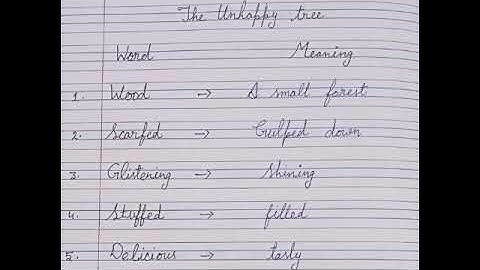 The Unhappy tree
Word Meaning
1. Wood → A small forest
2. Scarfed → Gulped down
3. Glistening → Shining
4. Stuffed → filled
5. Delicious → tasty